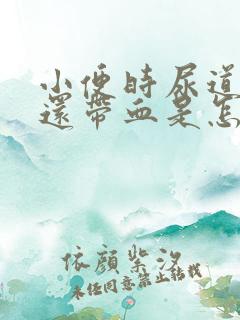 小便時尿道
還帶血是怎
依顏紫汐
未经同意禁止转载